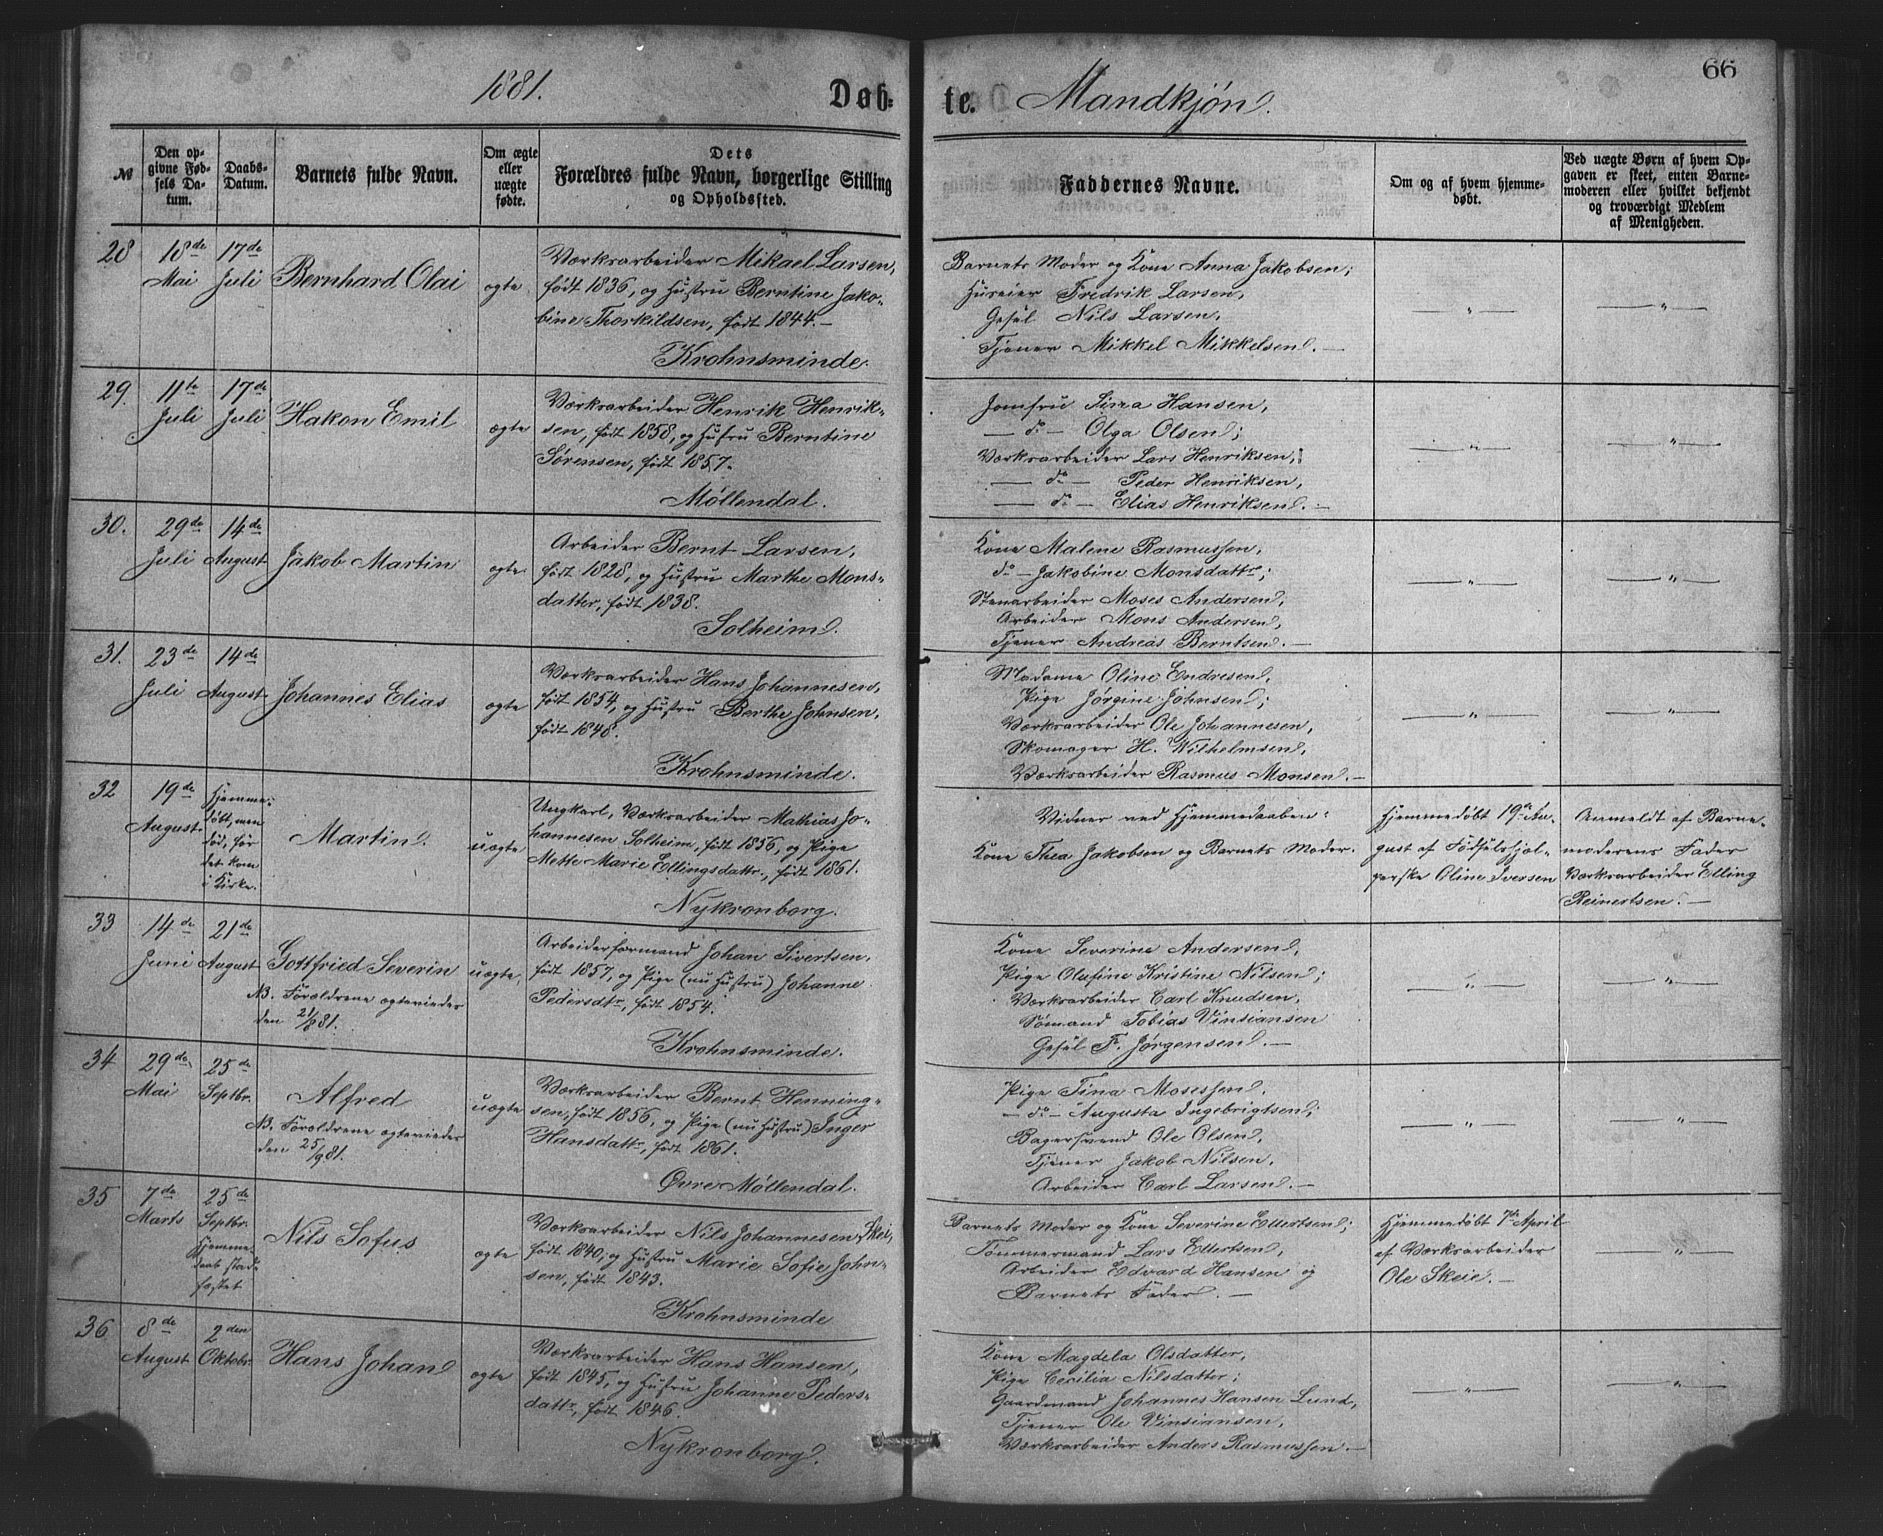 1881.
Døb-
te.
Mandkjøn.
66
№
Den op-
givne Fød-
sels Da-
tum.
Daabs-
Datum.
Barnets fulde Navn.
Om ægte
eller
uægte
fødte.
Dets
Forældres fulde Navn, borgerlige Stilling
og Opholdssted.
Faddernes Navne.
Om og af hvem hjemme-
døbt.
Ved uægte Børn af hvem Op-
gaven er skeet, enten Barne-
moderen eller hvilket bekjendt
og troværdigt Medlem
af Menigheden.
28
18de
Mai
17de
Juli
Bernhard Olai
ægte
Værksarbeider Mikael Larsen,
født 1836, og Hustru Berntine Jako-
bine Thorkildsen, født 1844.-
Krohnsminde.
Barnets Moder og Kone Anna Jakobsen;
Huseier Fredrik Larsen,
Gesel Nils Larsen,
Tjener Mikkel Mikkelsen. -
— " —
— " —
29.
11te
Juli
17de
Juli
Hakon Emil
ægte
Værksarbeider Henrik Henrik-
sen, født 1858, og Hustru Berntine
Sørensen, født 1857.
Møllendal.
Jomfru Sina Hansen,
— do — Olga Olsen;
Værksarbeider Lars Henriksen,
— do — Peder Henriksen,
— do — Elias Henriksen. -
— " —
— " —
30.
29de
Juli
14de
August
Jakob Martin
ægte
Arbeider Bernt Larsen,
født 1828, og Hustru Marthe Mons-
datter, født 1838.
Solheim.
Kone Malene Rasmussen,
do - Jakobine Monsdattr;
Stenarbeider Moses Andersen,
Arbeider Mons Andersen,
Tjener Andreas Berntsen. -
— " —
— " —
31.
23de
Juli
14de
August
Johannes Elias
ægte
Værksarbeider Hans Johannesen,
født 1854, og Hustru Berthe Johnsen,
født 1848.
Krohnsminde.
Madame Oline Endresen,
Pige Jørgine Johnsen;
Værksarbeider Ole Johannesen,
Skomager H. Wilhelmsen,
Værksarbeider Rasmus Monsen. -
— " —
— " —
32
19de
August
Hjemme-
døbt, men
død, før
det kom
i Kirke.
Martin.
uægte
Ungkarl, Værksarbeider Mathias Jo-
hannesen Solheim, født 1856, og Pige
Mette Marie Ellingsdattr, født 1861.
Nykronborg.
Vidner ved Hjemmedaaben:
Kone Thea Jakobsen og Barnets Moder.
Hjemmedøbt 19de Au-
gust af Fødselshjæl-
perske Oline Iversen
Anmeldt af Barne-
moderens Fader
Værksarbeider Elling
Reinertsen. -
33
14de
Juni
21de
August
Gottfried Severin
NB. Forældrene ægteviedes
den 21/8 81.
uægte
Arbeiderformand Johan Sivertsen,
født 1857, og Pige (nu Hustru) Johanne
Pedersdtr, født 1854.
Krohnsminde.
Kone Severine Andersen,
Pige Olufine Kristine Nilsen;
Værksarbeider Carl Knudsen,
Sømand Tobias Vinsiansen
Gesel F. Jørgensen. -
— " —
— " —
34
29de
Mai
25de
Septbr.
Alfred
NB. Forældrene ægteviedes
den 25/9 81.
uægte
Værksarbeider Bernt Henning-
sen, født 1856, og Pige (nu Hustru) Inger
Hansdattr, født 1861.
Øvre Møllendal.
Pige Tina Mosessen,
— do — Augusta Ingebrigtsen;
Bagersvend Ole Olsen,
Tjener Jakob Nilsen,
Arbeider Carl Larsen. -
— " —
— " —
35
7de
Marts
25de
Septbr.
Hjemme-
daab stad-
fæstet
Nils Sofus
ægte
Værksarbeider Nils Johannesen Skei,
født 1840, og Hustru Marie Sofie John-
sen, født 1843.
Krohnsminde
Barnets Moder og Kone Severine Ellertsen;
Tømmermand Lars Ellertsen,
Arbeider Edvard Hansen og
Barnets Fader. -
Hjemmedøbt 7de April
af Værksarbeider
Ole Skeie. -
— " —
36
8de
August
2den
Oktobr.
Hans Johan
ægte
Værksarbeider Hans Hansen,
født 1845, og Hustru Johanne Peders-
dattr, født 1846.
Nykronborg.
Kone Magdela Olsdatter,
Pige Cecilia Nilsdatter;
Gaardmand Johannes Hansen Lund,
Tjener Ole Vinsiansen,
Værksarbeider Anders Rasmussen. -
— " —
— " —